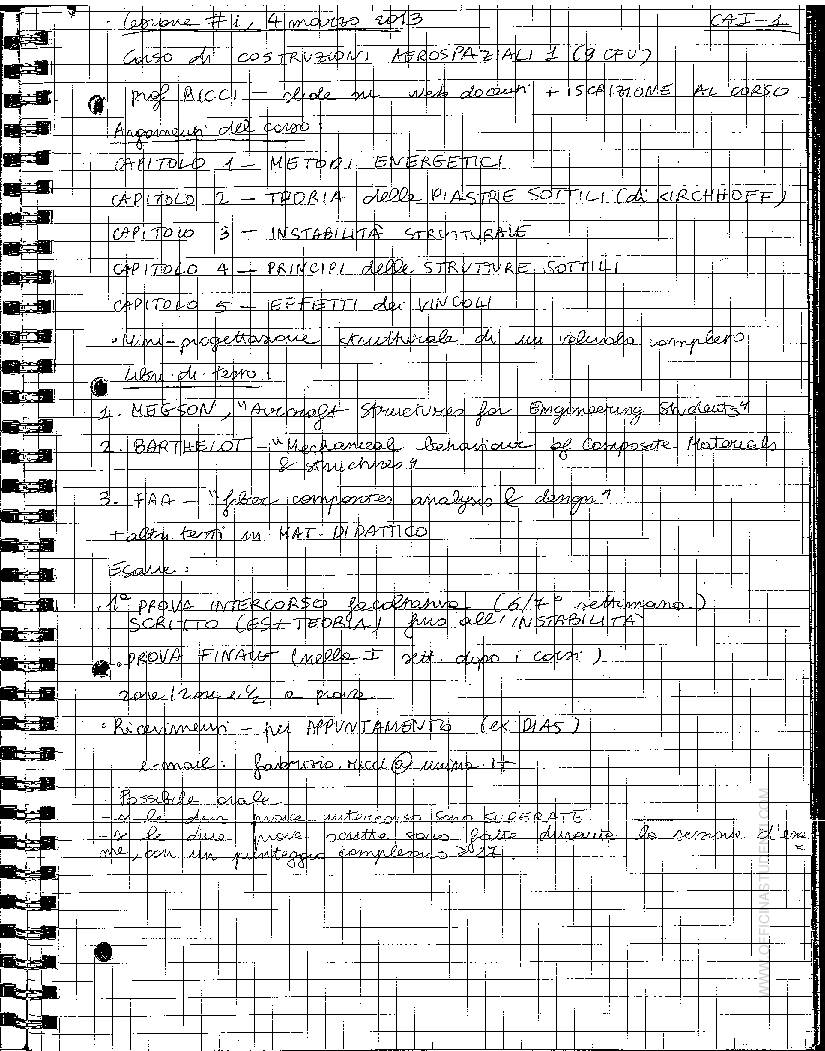 Lezione #1, 4 marzo 2013 CAI-1
Corso di COSTRUZIONI AEROSPAZIALI 1 (9 CFU)
prof RICCI - slide su web docenti + ISCRIZIONE AL CORSO
Argomenti del corso:
CAPITOLO 1 - METODI ENERGETICI
CAPITOLO 2 - TEORIA delle PIASTRE SOTTILI (di KIRCHHOFF)
CAPITOLO 3 - INSTABILITÀ STRUTTURALE
CAPITOLO 4 - PRINCIPI delle STRUTTURE SOTTILI
CAPITOLO 5 - EFFETTI dei VINCOLI
• Mini-progettazione strutturale di un velivolo completo
Libri di testo:
1. MEGSON, "Aircraft Structures for Engineering Students"
2. BARTHELOT - "Mechanical behaviour of Composite Materials
& structures"
3. FAA - "fiber composites analysis & design"
+ altri testi in MAT. DIDATTICO
Esame:
• 1ª PROVA INTERCORSO facoltativa (6/7ª settimana)
SCRITTO (ES + TEORIA) fino all'INSTABILITÀ
• PROVA FINALE (nella I sett. dopo i corsi)
2 ore e 1/2 a prova
• Ricevimenti - per APPUNTAMENTO (ex DIAS)
e-mail: fabrizio.ricci@unina.it
Possibile orale
- se le due prove intercorso sono SUPERATE
- se le due prove scritte sono fatte durante la sessione d'esa
me, con un punteggio complessivo
WWW.OFFICINASTUDENTI.COM